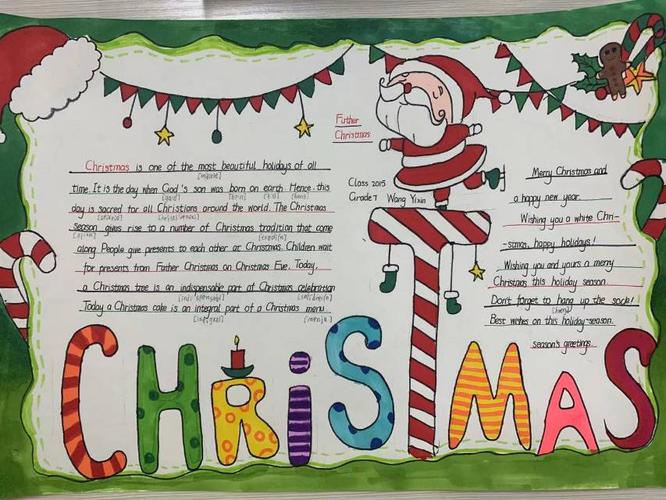 Futher
Christmas
Christmas is one of the most beautiful holidays of all
time. It is the day when God's son was born on earth. Hence. this
day is sacred for all Christians around the world. The Christmas
season gives rise to a number of Christmas tradition that come
along. People give presents to each other at Christmas. Children wait
for presents from Father Christmas on Christmas Eve. Today,
a Christmas tree is an indispensable part of Christmas celebration
Today a Christmas cake is an integral part of a Christmas menu.
Class 2015
Grade 7 Wang Yixin
Merry Christmas and
a happy new year.
Wishing you a white Chri-
-stmas, happy holidays!
Wishing you and yours a merry
Christmas this holiday season.
Don't forget to hang up the sock!
Best wishes on this holiday season.
season's greetings.
CHRiSTMAS